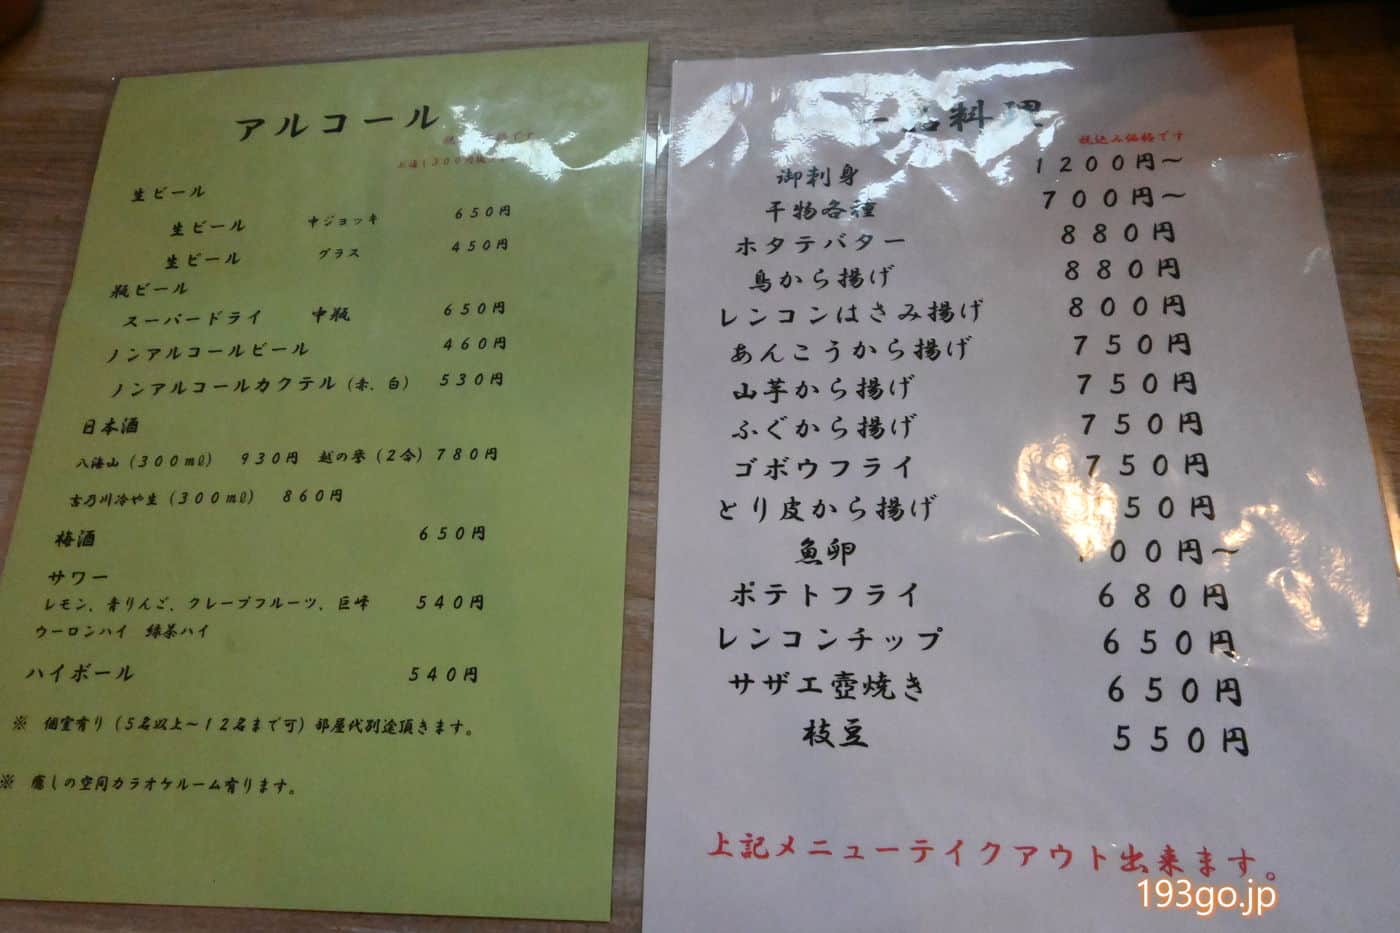 アルコール
生ビール
生ビール 中ジョッキ 650円
生ビール グラス 450円
瓶ビール
スーパードライ 中瓶 650円
ノンアルコールビール 460円
ノンアルコールカクテル（赤、白） 530円
日本酒
八海山（300㎖） 930円 越の誉（2合）780円
吉乃川冷や生（300㎖） 860円
梅酒 650円
サワー
レモン、青りんご、グレープフルーツ、巨峰 540円
ウーロンハイ 緑茶ハイ
ハイボール 540円
※ 個室有り（5名以上～12名まで可）部屋代別途頂きます。
※ 癒しの空間カラオケルーム有ります。
一品料理
税込み価格です
御刺身 1200円～
干物各種 700円～
ホタテバター 880円
鳥から揚げ 880円
レンコンはさみ揚げ 800円
あんこうから揚げ 750円
山芋から揚げ 750円
ふぐから揚げ 750円
ゴボウフライ 750円
とり皮から揚げ 50円
魚卵 00円～
ポテトフライ 680円
レンコンチップ 650円
サザエ壺焼き 650円
枝豆 550円
上記メニューテイクアウト出来ます。
193go.jp